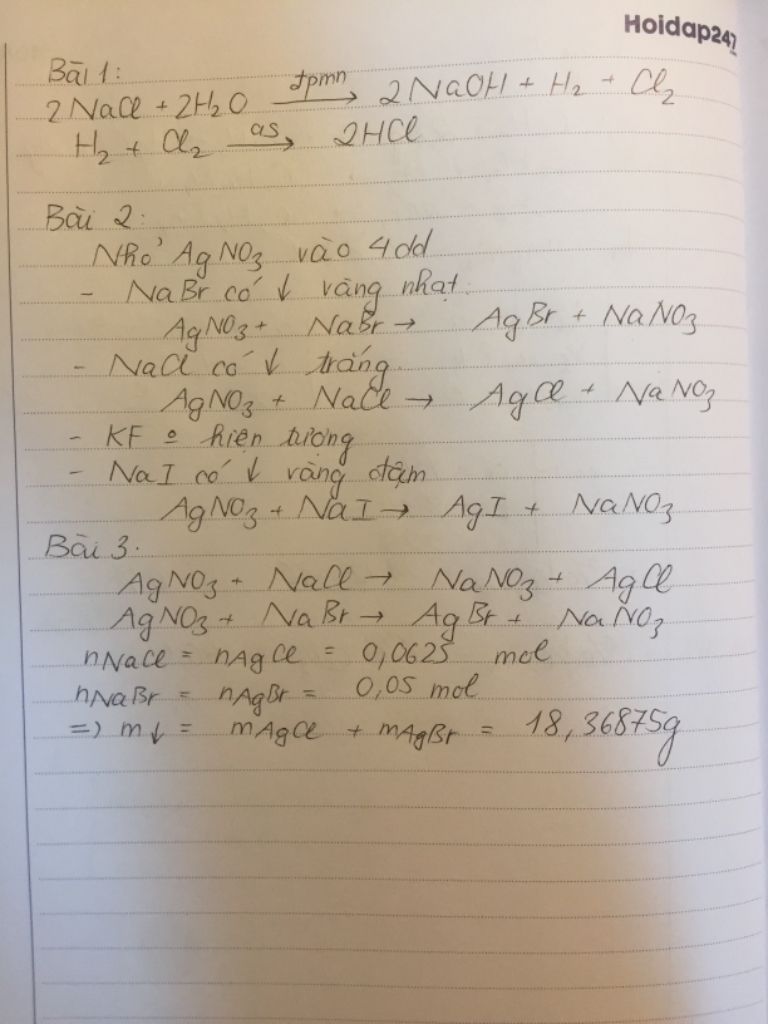 Hoidap247
Bài 1:
2NaCl + 2H₂O —đpmn→ 2NaOH + H₂ + Cl₂
H₂ + Cl₂ —as→ 2HCl
Bài 2:
Nhỏ AgNO₃ vào 4dd
- NaBr có ↓ vàng nhạt.
AgNO₃ + NaBr → AgBr + NaNO₃
- NaCl có ↓ trắng.
AgNO₃ + NaCl → AgCl + NaNO₃
- KF o hiện tượng
- NaI có ↓ vàng đậm
AgNO₃ + NaI → AgI + NaNO₃
Bài 3.
AgNO₃ + NaCl → NaNO₃ + AgCl
AgNO₃ + NaBr → AgBr + NaNO₃
nNaCl = nAgCl = 0,0625 mol
nNaBr = nAgBr = 0,05 mol
=> m↓ = mAgCl + mAgBr = 18,36875g